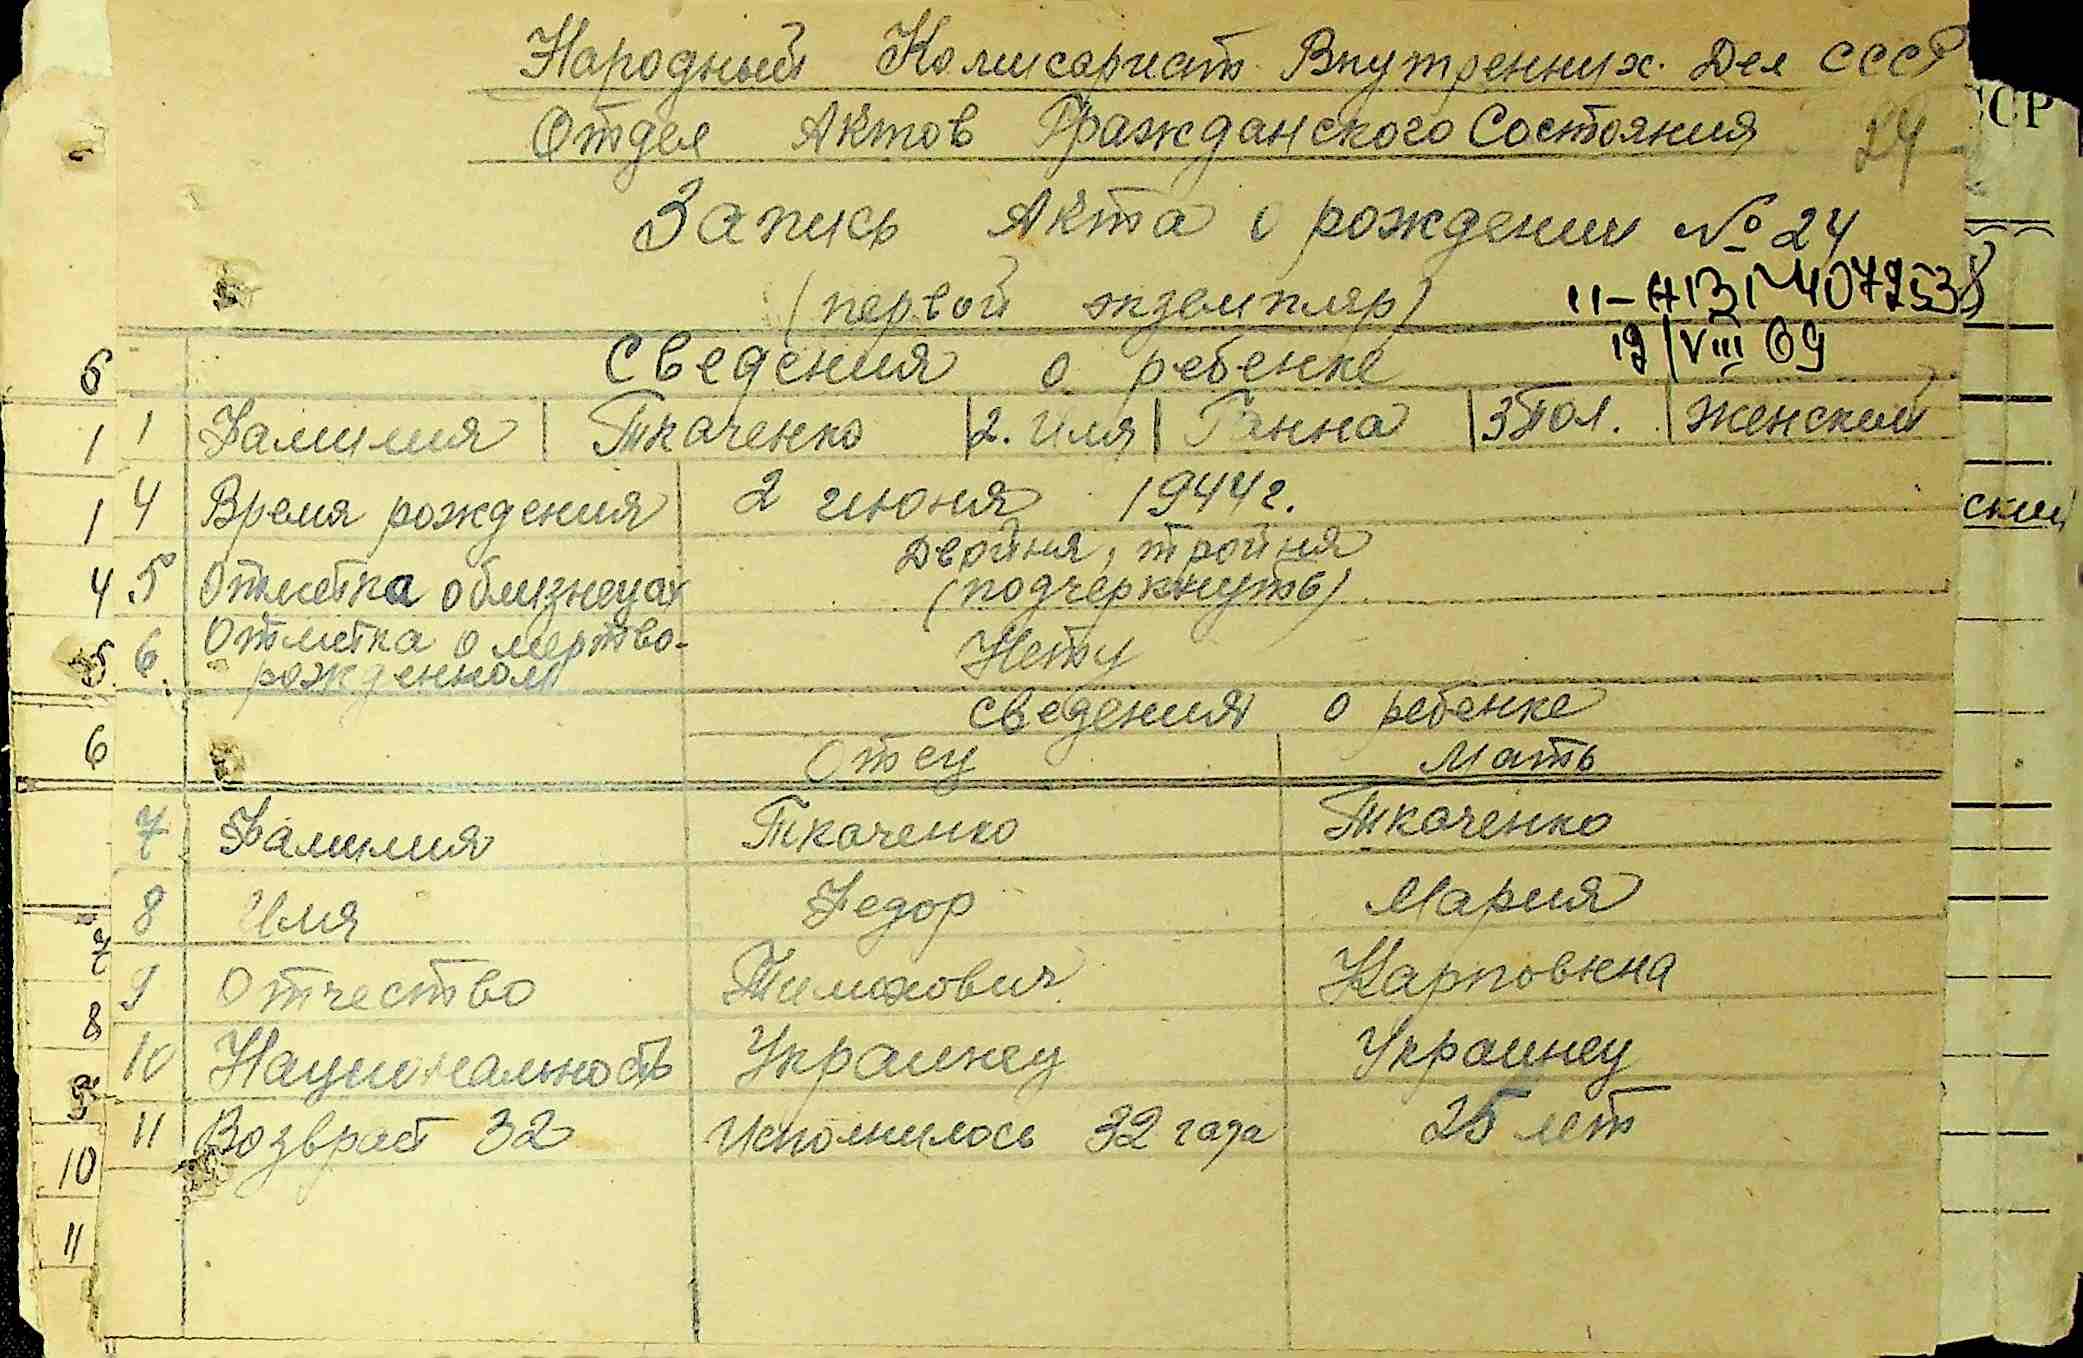 Народный Комисариат Внутренних Дел СССР
Отдел Актов Гражданского Состояния 24
Запись Акта о рождении № 24
(первой экземпляр)
19/VIII 69
Сведения о ребенке
1 Фамилия Ткаченко 2. Имя Ганна 3 Пол. женский
4 Время рождения 2 июня 1944 г.
Двойня, тройня
5 Отметка о близнецах (подчеркнуть)
6. Отметка о мертво-
рожденном Нету
сведения о ребенке
Отец Мать
7 Фамилия Ткаченко Ткаченко
8 Имя Федор Мария
9 Отчество Тимохович Карповна
10 Национальность Украинец Украинец
11 Возвраст 32 Исполнилось 32 года 25 лет
6
1
1
4
5
6
7
8
9
10
11
ССР
ский